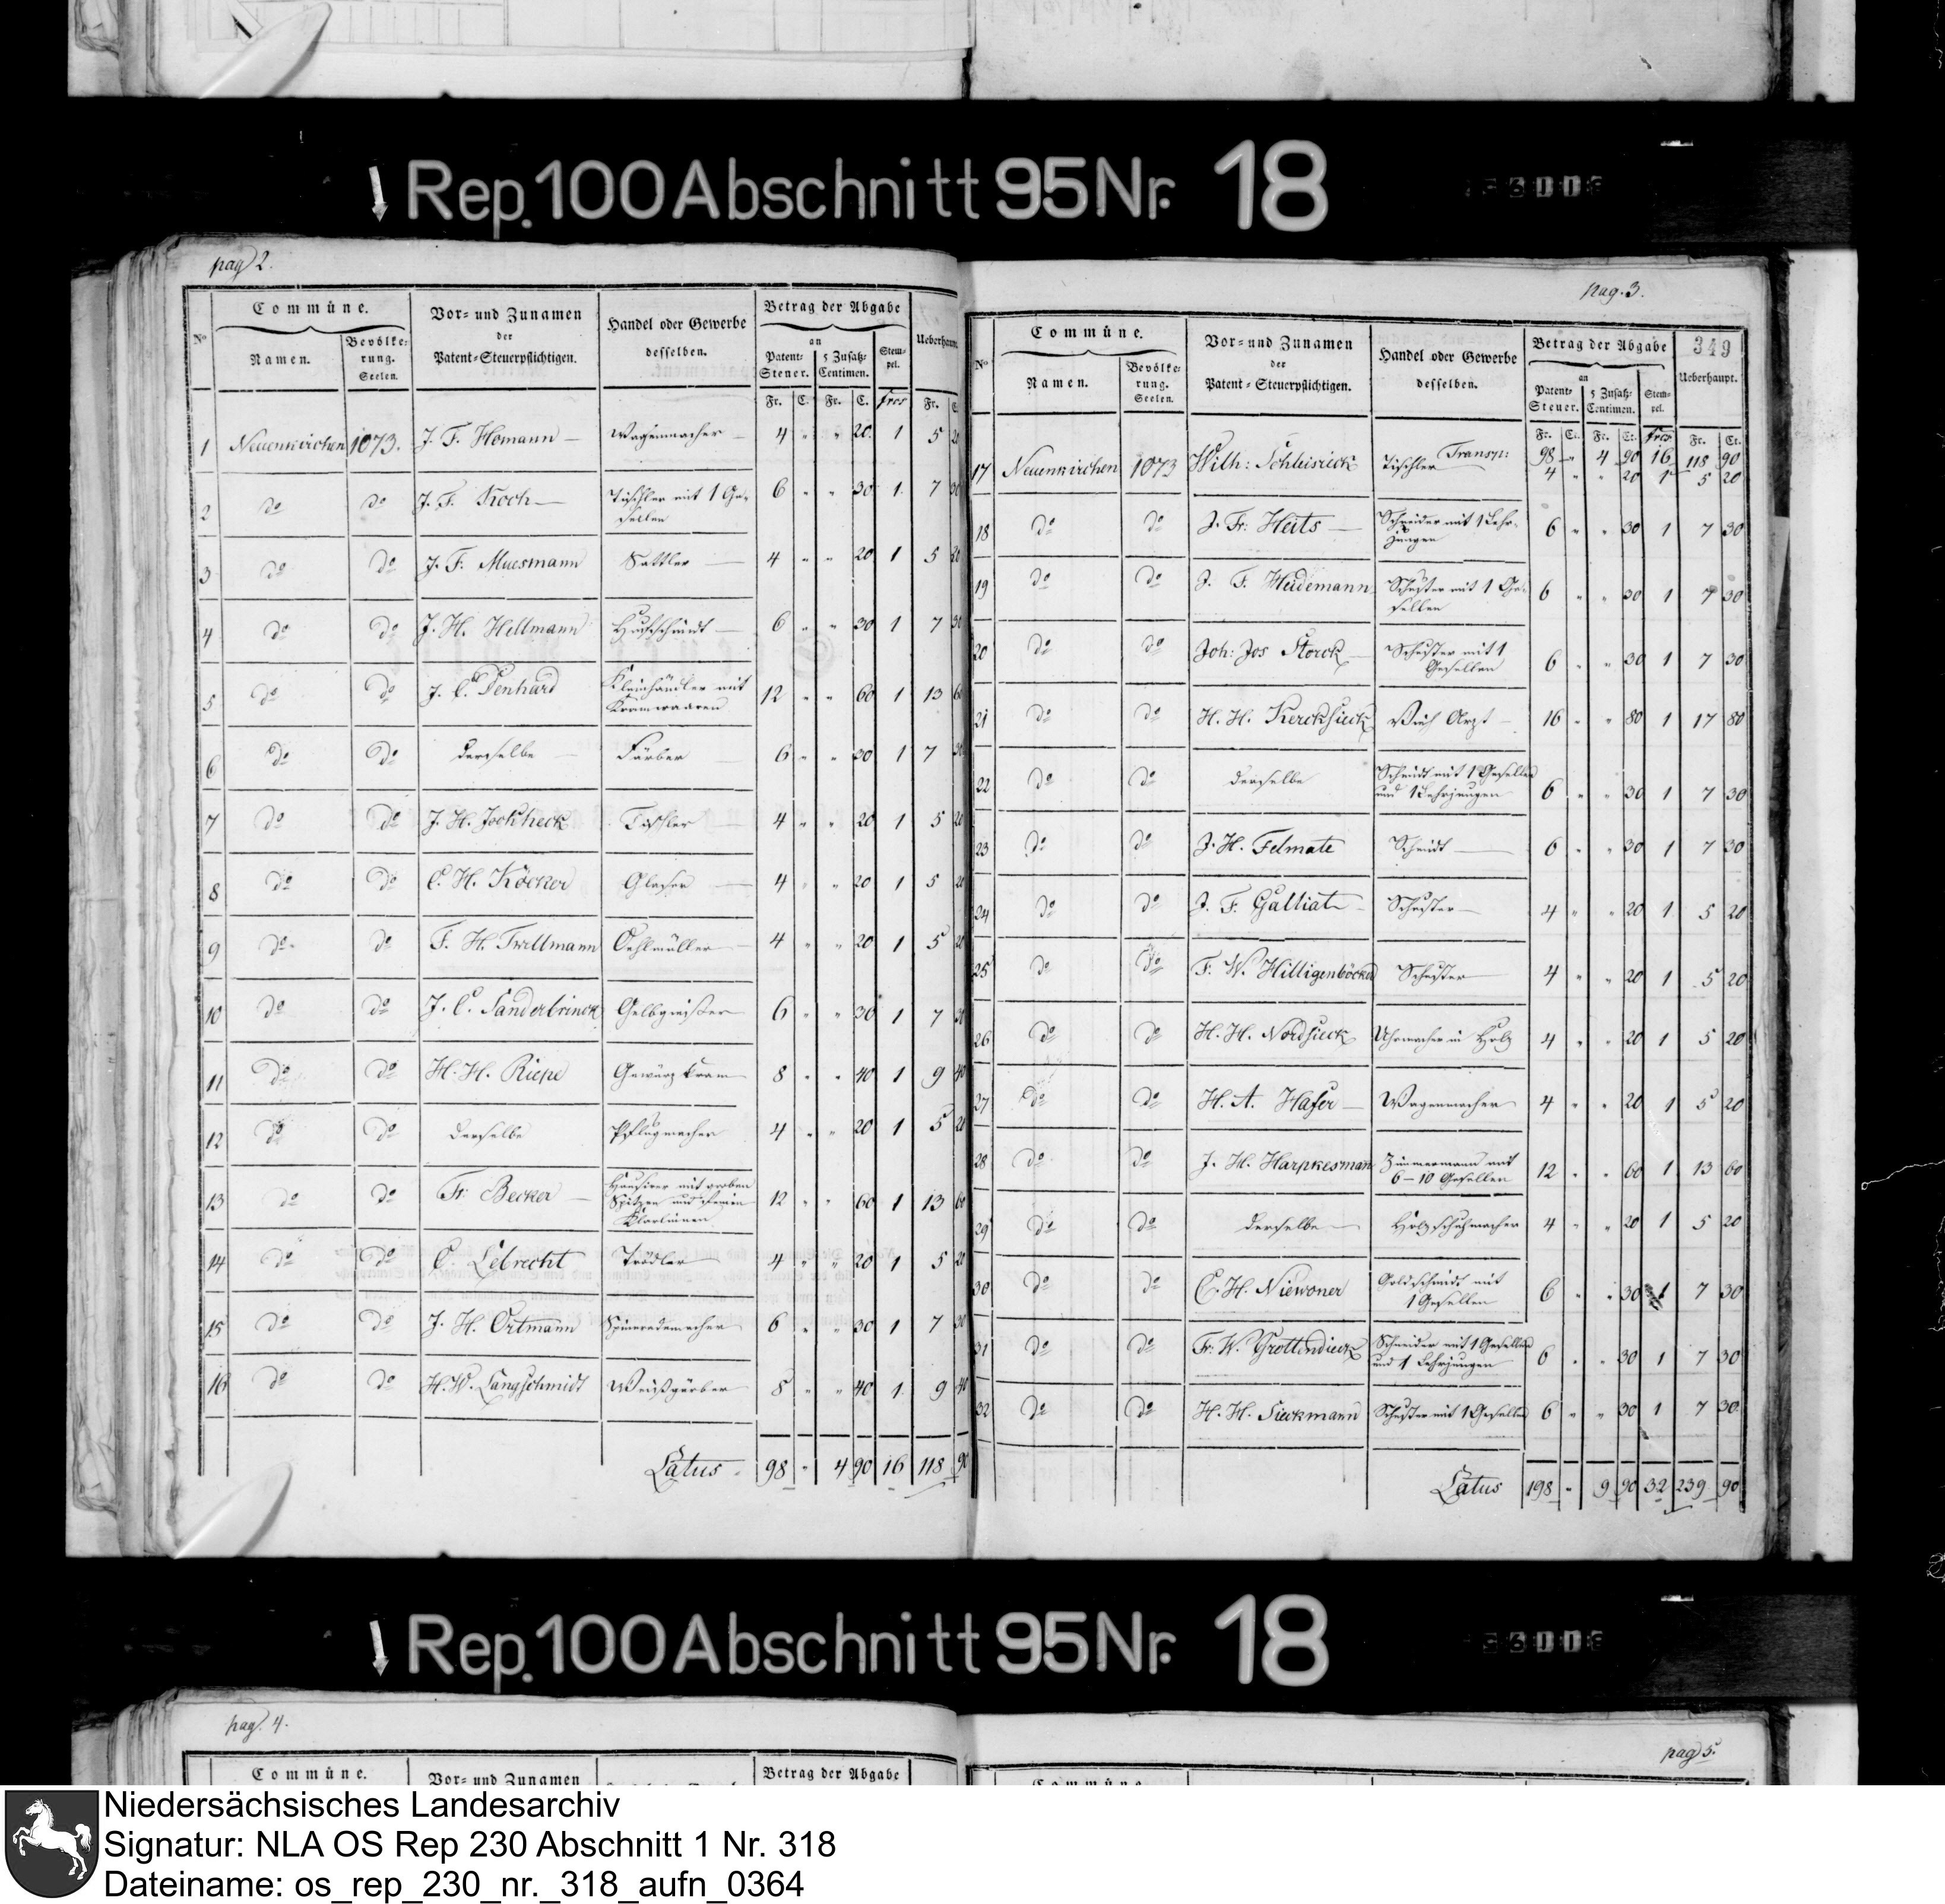 Rep. 100 Abschnitt 95 Nr. 18
pag 2.
Commüne.
Vor- und Zunamen
der
Patent-Steuerpflichtigen.
Handel oder Gewerbe
desselben.
Betrag der Abgabe
an
Ueberhaupt
No
Namen.
Bevölke-
rung.
Seelen.
Patent-
Steuer.
5 Zusatz-
Centimen.
Stem-
pel.
Fr. C. Fr. C. frcs Fr. C.
1 Neuenkirchen 1073. J. F. Homann Wagenmacher 4 " " 20. 1 5 20
2 do do J. F. Koch Tischler mit 1 Ge-
sellen 6 " " 30 1. 7 30
3 do do J. F. Muesmann Sattler 4 " " 20 1 5 20
4 do do J. H. Hellmann Hufschmidt 6 " " 30 1 7 30
5 do do J. C. Denhard Kleinhändler mit
Kramwaaren 12 " " 60 1 13 60
6 do do derselbe Färber 6 " " 30 1 7 30
7 do do J. H. Jockheck Tischler 4 " " 20 1 5 20
8 do do C. H. Köcker Glaser 4 " " 20 1 5 20
9 do do F. H. Twellmann Oehlmüller 4 " " 20 1 5 20
10 do do J. C. Sanderbrinck Gelbgießer 6 " " 30 1 7 30
11 do do H. H. Riepe Gewürzkram 8 " " 40 1 9 40
12 do do derselbe Pflugmacher 4 " " 20 1 5 20
13 do do Fr. Becker Hausirer mit groben
Spitzen und
12 " " 60 1 13 60
14 do do C. Lebrecht Trödler 4 " " 20 1 5 20
15 do do J. H. Ortmann Spinrademacher 6 " " 30 1 7 30
16 do do H. W. Langschmidt Weißgärber 8 " " 40 1. 9 40
Latus 98 " 4 90 16 118 90
pag. 3.
349
Commüne.
Vor- und Zunamen
der
Patent-Steuerpflichtigen.
Handel oder Gewerbe
desselben.
Betrag der Abgabe
an
Ueberhaupt.
No
Namen.
Bevölke-
rung.
Seelen.
Patent-
Steuer.
5 Zusatz-
Centimen.
Stem-
pel.
Fr. Ct. Fr. Ct. frcs Fr. Ct.
Transp: 98 " 4 90 16 118 90
17 Neuenkirchen 1073 Wilh: Schleisieck Tischler 4 " " 20 1 5 20
18 do do J. Fr. Heits Schneider mit 1 Lehr-
jungen 6 " " 30 1 7 30
19 do do J. F. Heidemann Schuster mit 1 Ge-
sellen 6 " " 30 1 7 30
20 do do Joh: Jos Storck Schuster mit 1
Gesellen 6 " " 30 1 7 30
21 do do H. H. Kercksieck Vieh Arzt 16 " " 80 1 17 80
22 do do derselbe Schmidt mit 1 Gesellen
und 1 Lehrjungen 6 " " 30 1 7 30
23 do do J. H. Felmate Schmidt 6 " " 30 1 7 30
24 do do J. F. Galliat Schuster 4 " " 20 1 5 20
25 do do F. W. Hilligenböcker Schuster 4 " " 20 1 5 20
26 do do H. H. Nordsieck Uhrmacher in Holz 4 " " 20 1 5 20
27 do do H. A. Hafer Wagenmacher 4 " " 20 1 5 20
28 do do J. H. Harpkesman Zimmermann mit
6–10 Gesellen 12 " " 60 1 13 60
29 do do derselbe Holzschuhmacher 4 " " 20 1 5 20
30 do do C. H. Niewoner Goldschmidt mit
1 Gesellen 6 " " 30 1 7 30
31 do do Fr. W. Grottendieck Schneider mit 1 Gesellen
und 1 Lehrjungen 6 " " 30 1 7 30
32 do do H. H. Sieckmann Schuster mit 1 Gesellen 6 " " 30 1 7 30
Latus 198 " 9 90 32 239 90
Rep. 100 Abschnitt 95 Nr. 18
pag. 4.
Commüne.
Vor- und Zunamen
Betrag der Abgabe
pag 5.
Niedersächsisches Landesarchiv
Signatur: NLA OS Rep 230 Abschnitt 1 Nr. 318
Dateiname: os_rep_230_nr._318_aufn_0364